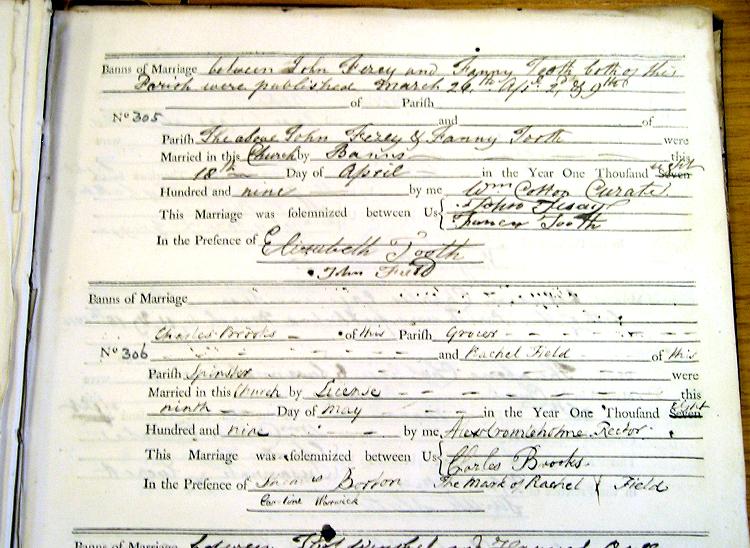 Banns of Marriage between John Ferey and Fanny Tooth both of this
Parish were published March 26th Apl 2d & 9th
of Parish
No 305 and of
Parish The above John Ferey & Fanny Tooth were
Married in this Church by Banns this
18th Day of April in the Year One Thousand Seven Eight
Hundred and nine by me Wm Cotton Curate
This Marriage was solemnized between Us John
Francis Tooth
In the Presence of Elizabeth Tooth
John Field
Banns of Marriage
Charles Brooks of this Parish Grocer
No 306 and Rachel Field of this
Parish Spinster were
Married in this Church by License this
ninth Day of May in the Year One Thousand Seven Eight
Hundred and nine by me Rector
This Marriage was solemnized between Us Charles Brooks
In the Presence of Borton The Mark of Rachel Field
Caroline Warwick
Banns of Marriage between and